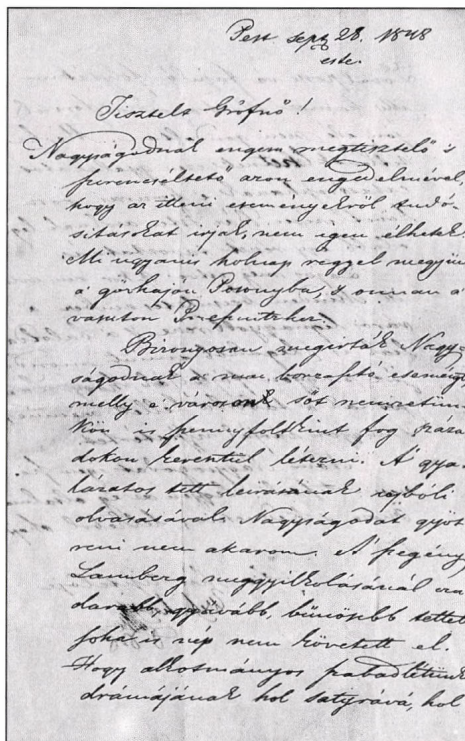 Pest sept 28. 1848
este.
Tisztelt Grófnő!
Nagyságodnak engem megtisztelő s
szerencséltető azon engedelmével,
hogy az itteni eseményekről tudó-
sitásokat irjak, nem igen élhetek.
Mi ugyanis holnap reggel megyün
a gőzhajón Posonyba, s onnan a
vasuton
Bizonyosan megirták Nagy-
ságodnak a mai borzasztó eseményt
melly e városon sőt nemzetün
kön is szennyfoltkint fog száza
dokon keresztül létezni. A gya
lázatos tett leirásának ujbóli
olvasásával Nagyságodat gyöt
reni nem akarom. A szegény
Lamberg meggyilkolásánál
gyávább, bünösebb tettet
soha is nép nem követett el.
Hogy alkotmányos szabadlétünk
drámájának hol satyrává, hol